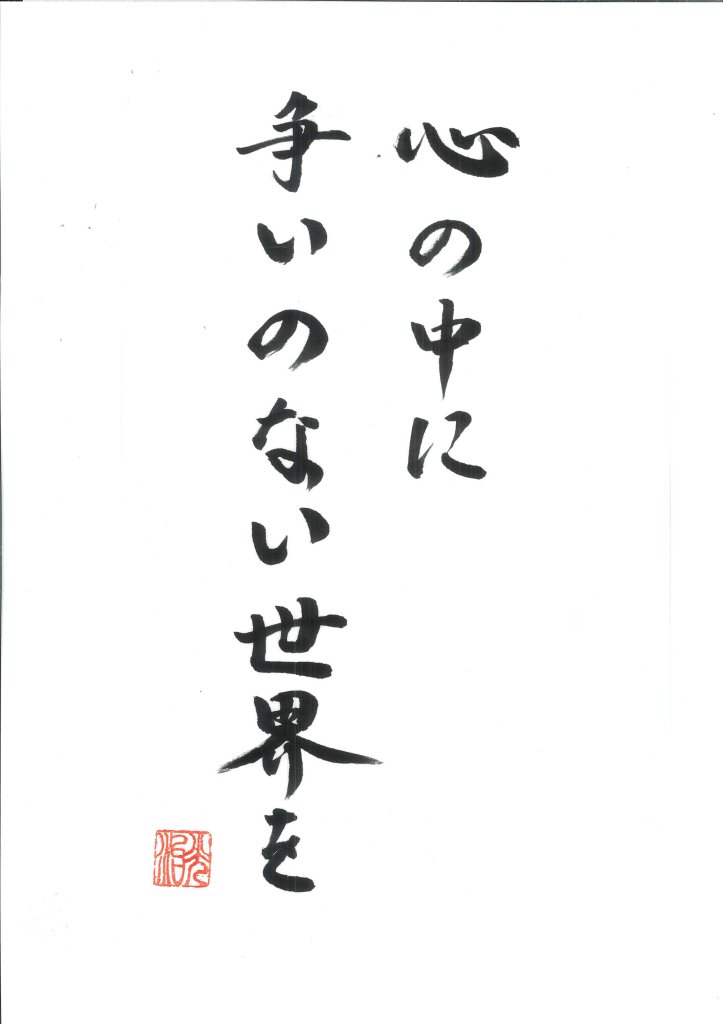 心の中に
争いのない世界を